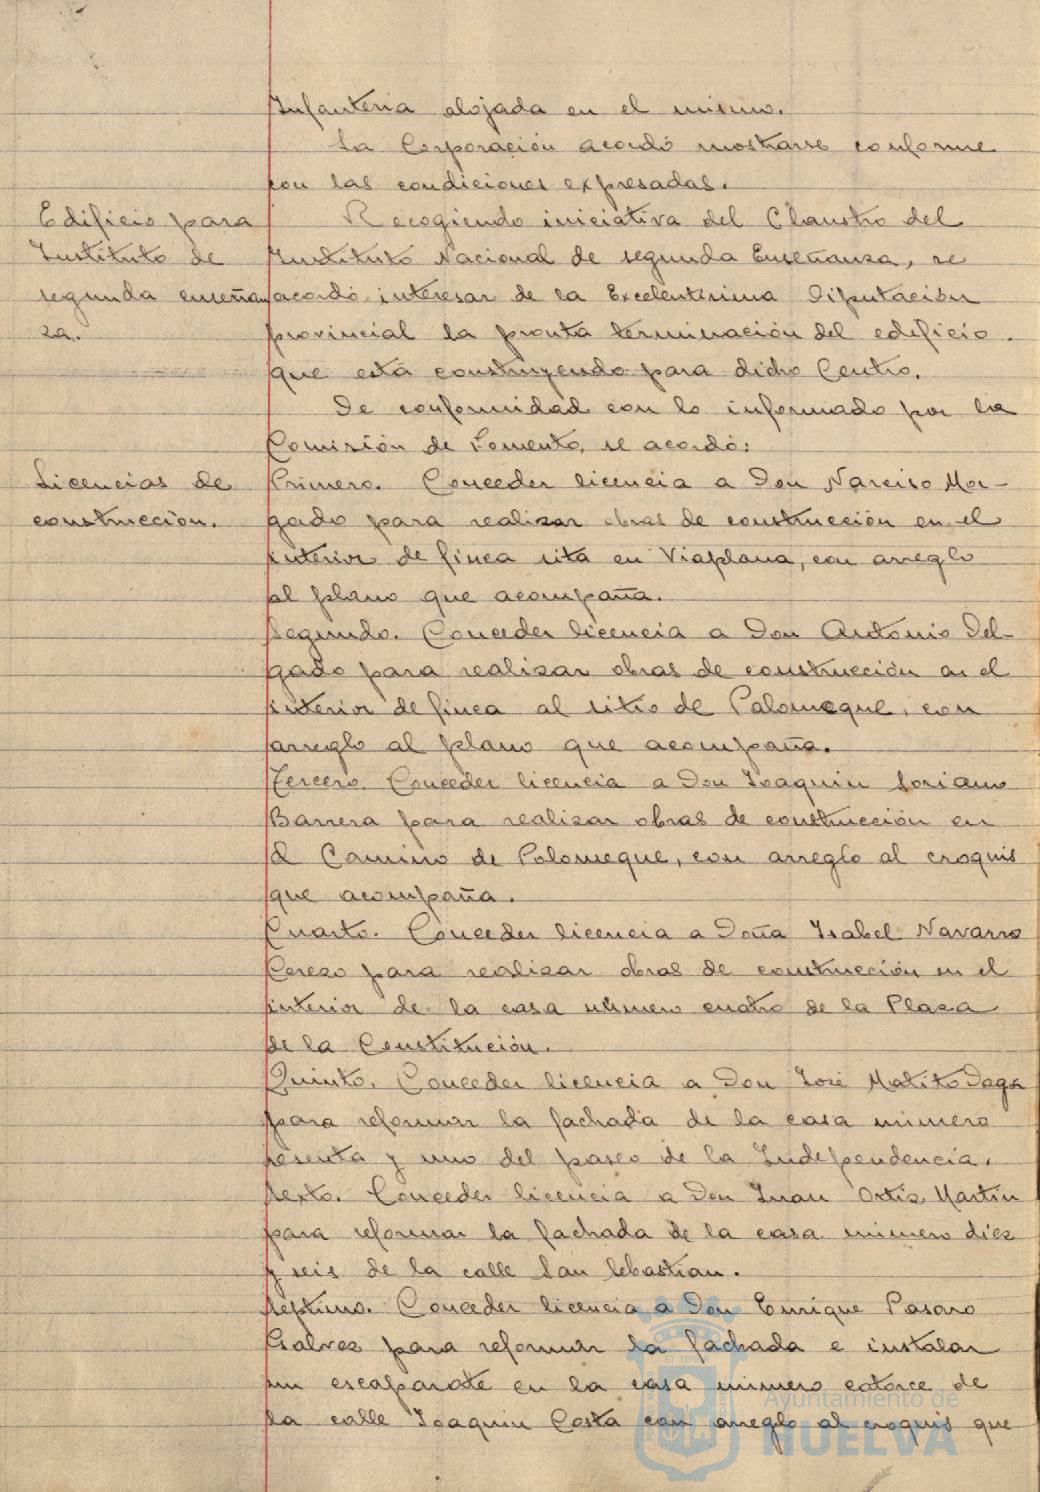 Infanteria alojada en el mismo.
La Corporación acordó mostrarse conforme
con las condiciones expresadas.
Edificio para
Instituto de
segunda enseñan
za.
Recogiendo iniciativa del Claustro del
Instituto Nacional de segunda Enseñanza, se
acordó interesar de la Excelentisima Diputación
provincial la pronta terminación del edificio
que está construyendo para dicho Centro.
De conformidad con lo informado por la
Comisión de Fomento, se acordó:
Licencias de
construccion.
Primero. Conceder licencia a Don Narciso Mor-
gado para realizar obras de construcción en el
interior de finca sita en Viaplana, con arreglo
al plano que acompaña.
Segundo. Conceder licencia a Don Antonio Del-
gado para realizar obras de construcción en el
interior de finca al sitio de Palomeque, con
arreglo al plano que acompaña.
Tercero. Conceder licencia a Don Joaquin Soriano
Barrera para realizar obras de construcción en
el Camino de Palomeque, con arreglo al croquis
que acompaña.
Cuarto. Conceder licencia a Doña Isabel Navarro
Cerezo para realizar obras de construcción en el
interior de la casa número cuatro de la Plaza
de la Constitución.
Quinto. Conceder licencia a Don José Matito Daga
para reformar la fachada de la casa número
sesenta y uno del paseo de la Independencia.
Sexto. Conceder licencia a Don Juan Ortiz Martin
para reformar la fachada de la casa número diez
y seis de la calle San Sebastian.
Septimo. Conceder licencia a Don Enrique Pasaro
Galvez para reformar la fachada e instalar
un escaparate en la casa número catorce de
la calle Joaquin Costa con arreglo al croquis que
Ayuntamiento de
HUELVA